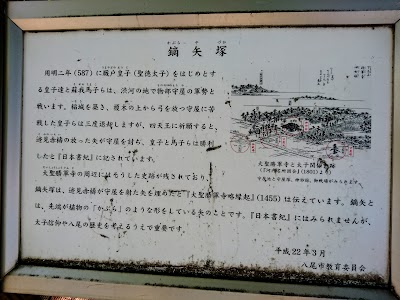 かぶら や づか
鏑矢塚
用明二年(587)に厩戸皇子(聖徳太子)をはじめとす
る皇子達と蘇我馬子らは、渋河の地で物部守屋の軍勢と
戦います。稲城を築き、榎木の上から弓を放つ守屋に苦
戦した皇子らは三度退却しますが、四天王に祈願すると、
迹見赤檮の放った矢が守屋を討ち、皇子と馬子らは勝利
したと『日本書紀』に記されています。
大聖勝軍寺の周辺にはそうした史跡が残されており、
鏑矢塚は、迹見赤檮が守屋を射た矢を埋めたと『大聖勝軍寺略縁起』(1455)は伝えています。鏑矢と
は、先端が植物の「かぶら」のような形をしている矢のことです。『日本書紀』にはみられませんが、
太子信仰や八尾の歴史を考えるうえで重要です。
大聖勝軍寺と太子関係史跡
『河内名所図会』(1801)より
平成22年3月
八尾市教育委員会